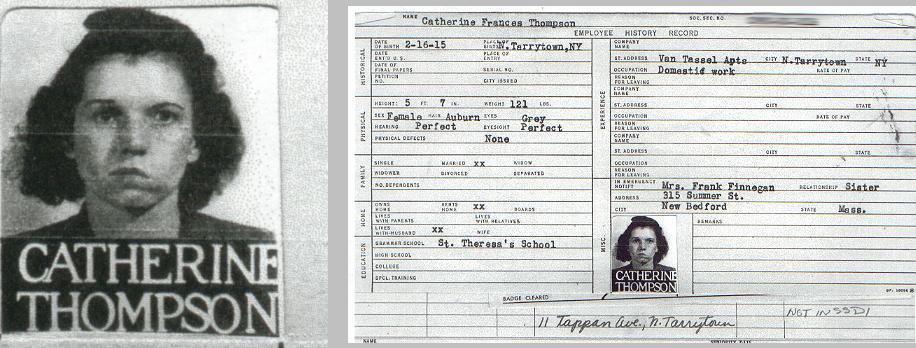 CATHERINE
THOMPSON
NAME Catherine Frances Thompson SOC. SEC. NO.
EMPLOYEE HISTORY RECORD
HISTORICAL
DATE OF BIRTH 2-16-15 PLACE OF BIRTH N.Tarrytown,NY
DATE ENT'D U.S. PLACE OF ENTRY
DATE OF FINAL PAPERS SERIAL NO.
PETITION NO. CITY ISSUED
PHYSICAL
HEIGHT: 5 FT. 7 IN. WEIGHT 121 LBS.
SEX Female HAIR Auburn EYES Grey
HEARING Perfect EYESIGHT Perfect
PHYSICAL DEFECTS None
FAMILY
SINGLE MARRIED xx WIDOW
WIDOWER DIVORCED SEPARATED
NO. DEPENDENTS
HOME
OWNS HOME RENTS HOME xx BOARDS
LIVES WITH PARENTS LIVES WITH RELATIVES
LIVES WITH-HUSBAND xx WIFE
EDUCATION
GRAMMAR SCHOOL St. Theresa's School
HIGH SCHOOL
COLLEGE
SPCL. TRAINING
EXPERIENCE
COMPANY NAME
ST. ADDRESS Van Tassel Apts CITY N.Tarrytown STATE NY
OCCUPATION Domestic work RATE OF PAY
REASON FOR LEAVING
COMPANY NAME
ST. ADDRESS CITY STATE
OCCUPATION RATE OF PAY
REASON FOR LEAVING
COMPANY NAME
ST. ADDRESS CITY STATE
OCCUPATION
REASON FOR LEAVING
MISC.
IN EMERGENCY NOTIFY Mrs. Frank Finnegan RELATIONSHIP Sister
ADDRESS 315 Summer St.
CITY New Bedford STATE Mass.
REMARKS
CATHERINE
THOMPSON
BADGE CLEARED
11 Tappan Ave., N. Tarrytown
NOT IN SSDI
NAME